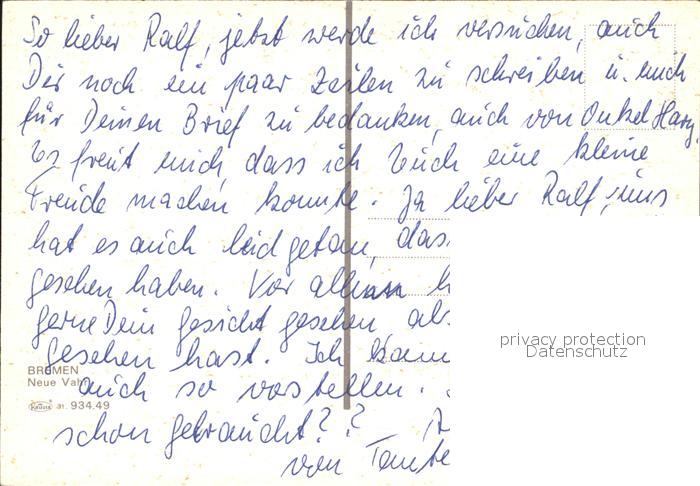 So lieber Ralf, jetzt werde ich versuchen, auch
Dir noch ein paar Zeilen zu schreiben u. mich
für Deinen Brief zu bedanken, auch von Onkel Hary.
Es freut mich, dass ich Euch eine kleine
Freude machen konnte. Ja lieber Ralf, uns
hat es auch leid getan, das
gesehen haben. Vor allem h
gerne Dein Gesicht gesehen als
gesehen hast. Ich kann
auch so vorstellen.
schon gebraucht??
von Tante
BREMEN
Neue Vahr
Krüger 31. 934.49
privacy protection
Datenschutz